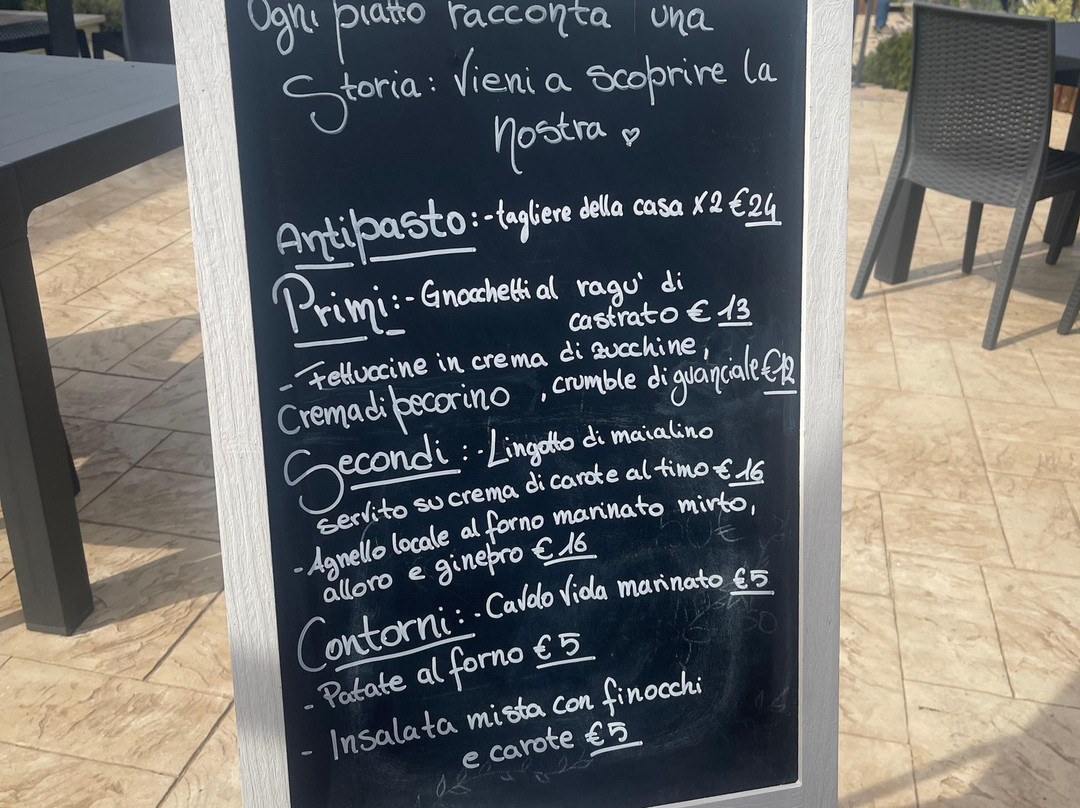 Ogni piatto racconta una
Storia: Vieni a scoprire la
nostra ♡
Antipasto: - tagliere della casa x2 €24
Primi: - Gnocchetti al ragu' di
castrato € 13
- Fettuccine in crema di zucchine,
Crema di pecorino, crumble di guanciale €12
Secondi: - Lingotto di maialino
servito su crema di carote al timo € 16
- Agnello locale al forno marinato mirto,
alloro e ginepro € 16
Contorni: - Cavolo Viola marinato €5
- Patate al forno €5
- Insalata mista con finocchi
e carote €5